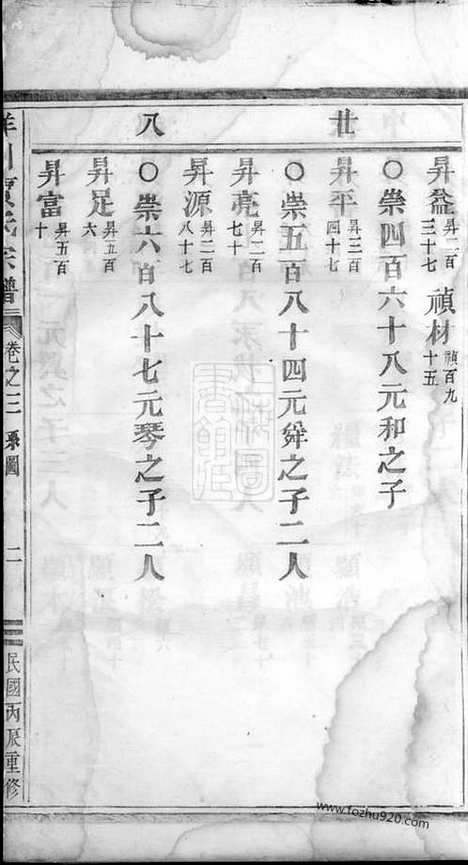 昇益 昇二百三十七 禎材 禎百九十五
〇崇四百六十八元和之子
廿
昇平 昇三百四十七
〇崇五百八十四元舜之子二人
昇亮 昇二百七十
昇源 昇二百八十七
八
〇崇六百八十七元琴之子二人
昇足 昇五百六
昇富 昇五百十
川 氏宗譜 卷之三 系圖 二 民國丙辰重修
www.fozhu920.com